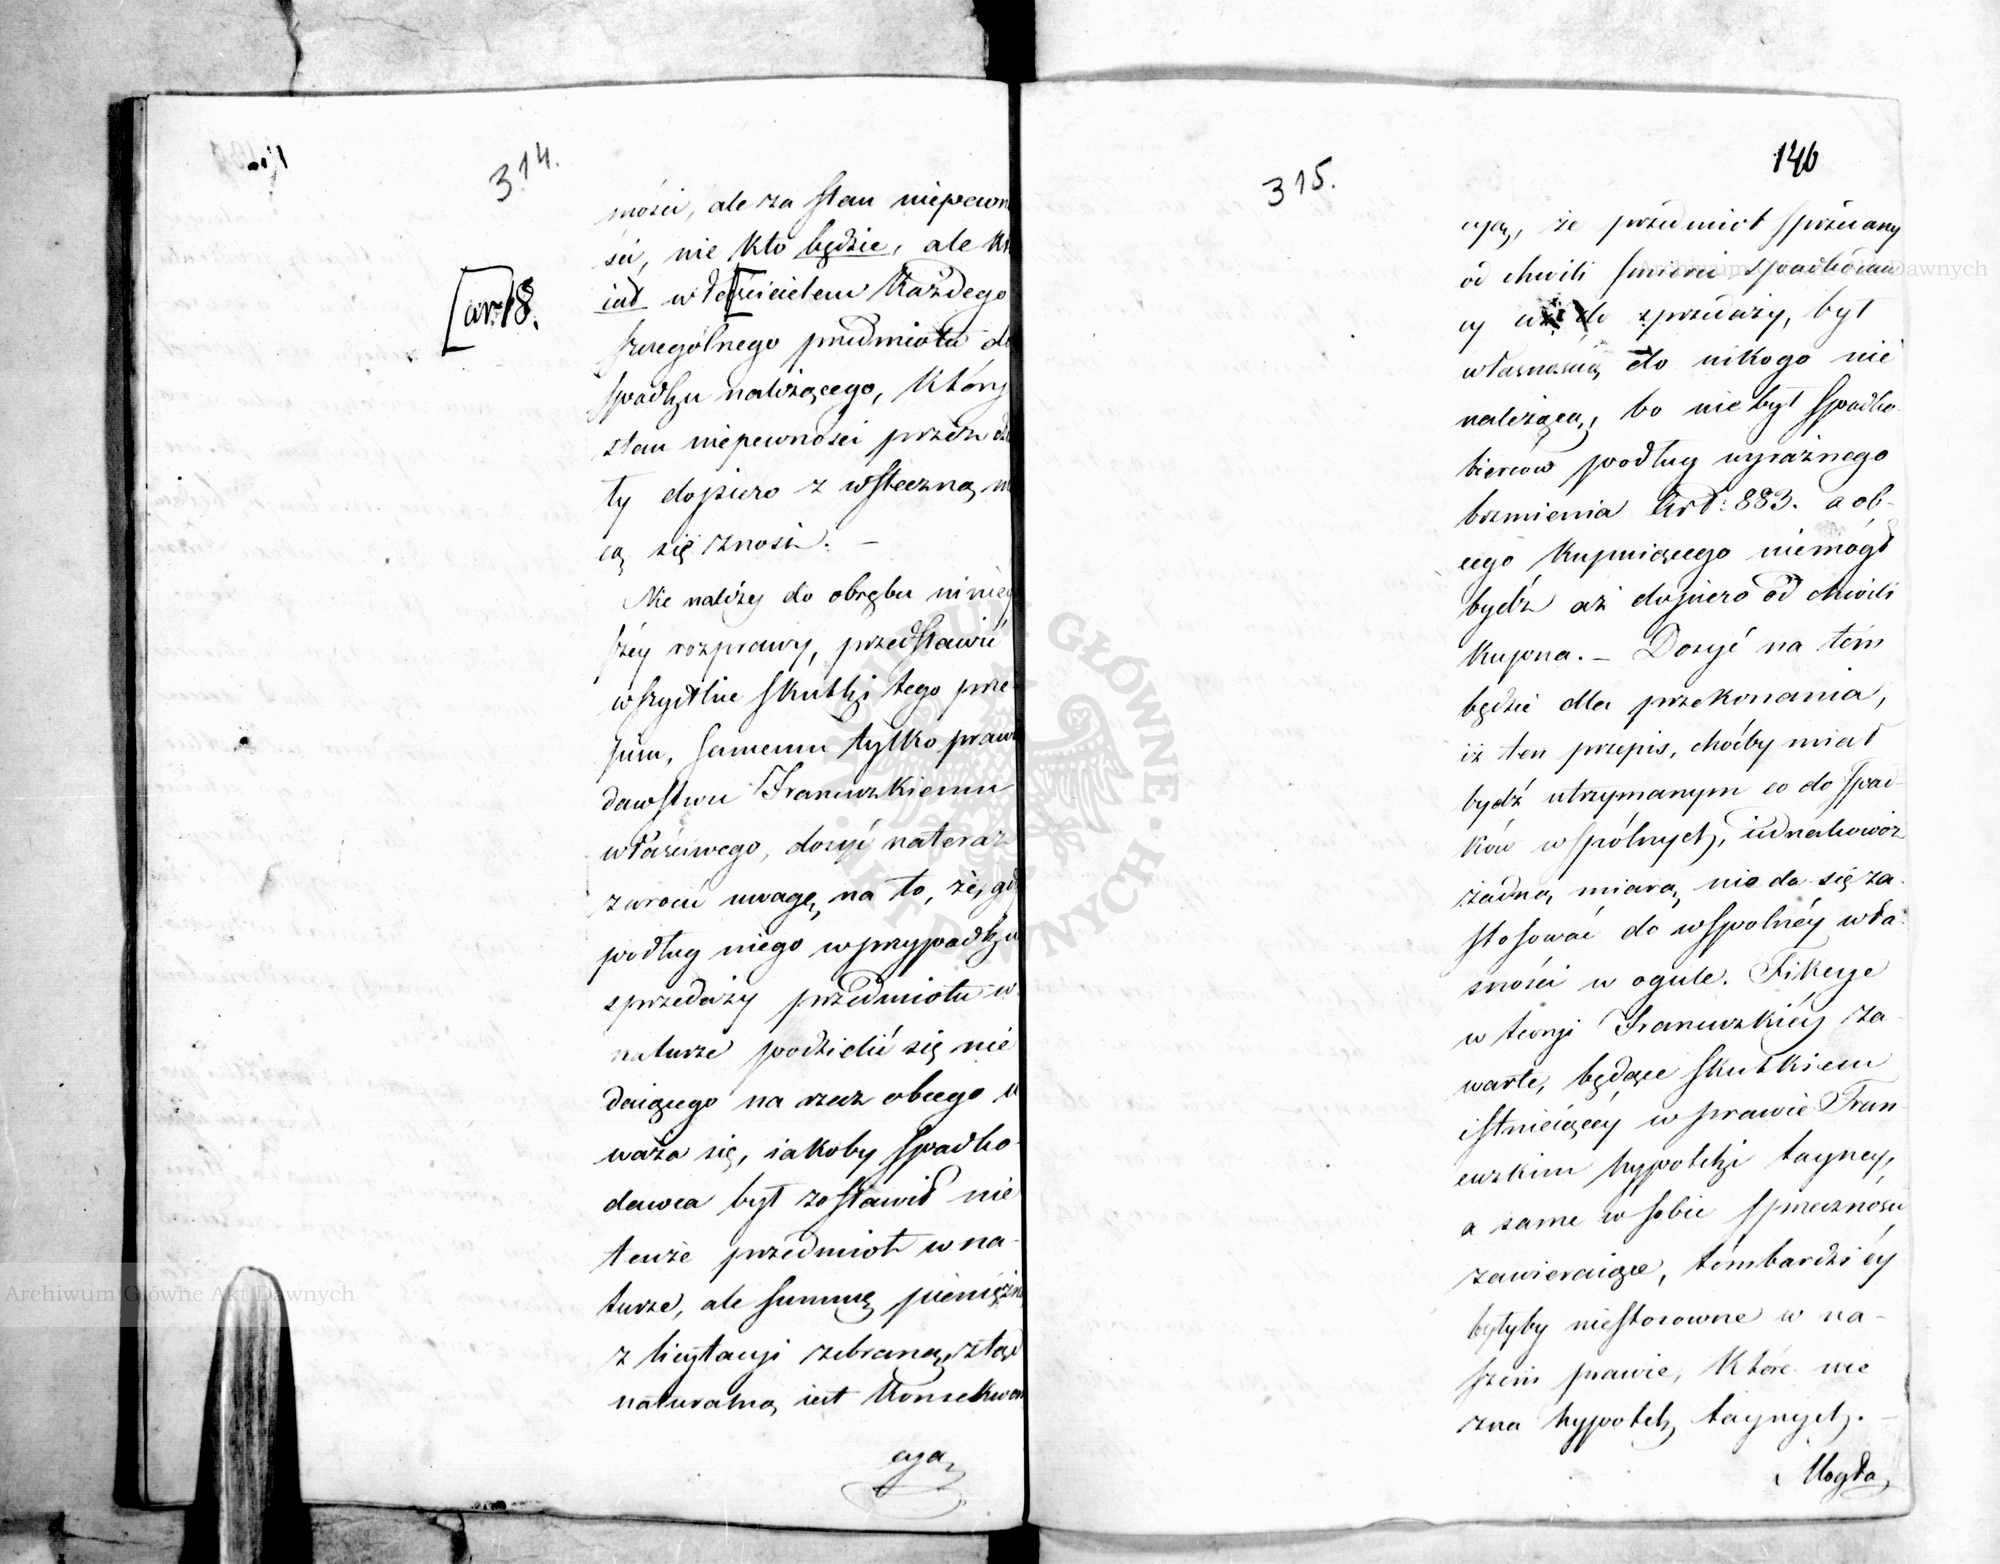 314.
mości, ale za stan niepewno
ści, nie kto będzie, ale kto
iest właścicielem każdego
szczególnego przedmiotu do
spadku należącego, który
stan niepewności przez dzia
ty dopiero z wsteczną mo
cą się znosi. —
[ar. 18.
Nie należy do obrębu ninięy
széy rozprawy, przedstawić
wszystkie skutki tego prze
pisu, samemu tylko prawo
dawstwu Francuzkiemu
właściwego, dosyć na teraz
zwrócić uwagę na to, że, gdy
podług niego w przypadku
sprzedaży przedmiotu w
naturze podzielić się nie
daiącego na rzecz obcego u
waża się, iakoby spadko-
dawca był zostawił nie
tenże przedmiot w na-
turze, ale summę pieniężną
z licytacyi zebraną, ztąd
naturalną iest konsekwen
cyą
315.
146
cyą, że przedmiot sprzedany
od chwili śmierci spadkodaw
cy aż do sprzedaży, był
własnością do nikogo nie
należącą, bo nie był spadko-
bierców podług wyraźnego
brzmienia Art: 883. a ob-
cego kupuiącego niemógł
bydź aż dopiero od chwili
kupna. — Dosyć na tém
będzie dla przekonania,
iż ten przepis, choćby miał
bydź utrzymanym co do spad-
ków wspólnych, iednakowoż
żadną miarą nie da się za-
stosować do wspólnéy wła-
sności w ogule. Fikcye
w teoryi Francuzkiéy za-
warte, będące skutkiem
istnieiącéy w prawie Fran-
cuzkim hypoteki tayney,
a same w sobie sprzeczności
zawieraiące, témbardziéy
byłyby niestosowne w na-
szém prawie, które nie
zna hypotek taynych. —
Mogła
Archiwum Główne Akt Dawnych
Archiwum Główne Akt Dawnych
ARCHIWUM GŁÓWNE AKT DAWNYCH